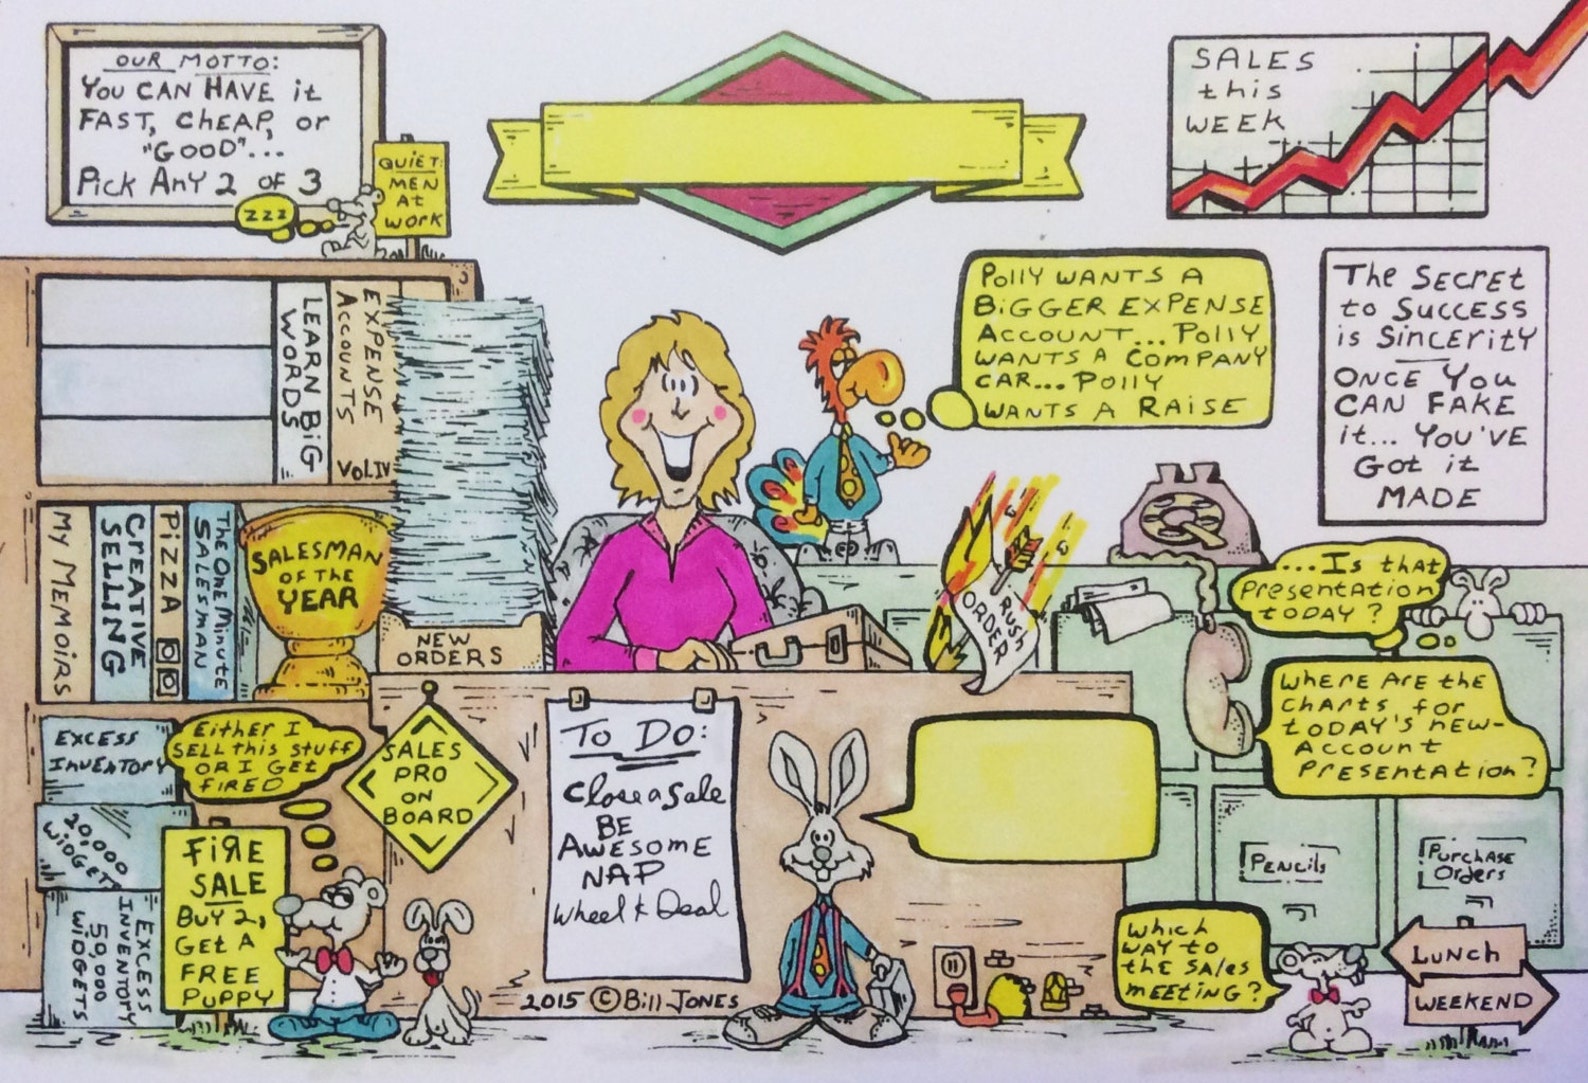 OUR MOTTO:
YOU CAN HAVE it
FAST, CHEAP, or
"GOOD"...
Pick ANY 2 OF 3
QUIET:
MEN
At
WORK
ZZZ
SALES
this
WEEK
POLLY WANTS A
BIGGER EXPENSE
ACCOUNT... POLLY
WANTS A COMPANY
CAR... POLLY
WANTS A RAISE
The SECRET
to SUCCESS
is SINCERITY
ONCE YOU
CAN FAKE
it... YOU'VE
GOT it
MADE
LEARN BIG
WORDS
EXPENSE
ACCOUNTS
VOL.IV
MY MEMOIRS
CREATIVE
SELLING
PIZZA
The ONE MINUTE
SALESMAN
SALESMAN
OF THE
YEAR
NEW
ORDERS
RUSH
ORDER
...IS that
PRESENTATION
TODAY?
WHERE ARE the
CHARTS FOR
TODAY'S NEW-
ACCOUNT
PRESENTATION?
EXCESS
INVENTORY
20,000
WIDGETS
EXCESS
INVENTORY
50,000
WIDGETS
EITHER I
SELL this STUFF
OR I GET
FIRED
FIRE
SALE
BUY 2,
GET A
FREE
PUPPY
SALES
PRO
ON
BOARD
TO DO:
Close a Sale
BE
AWESOME
NAP
Wheel & Deal
2015 © BILL JONES
PENCILS
PURCHASE
Orders
WHICH
WAY to
the SALES
MEETING?
LUNCH
WEEKEND